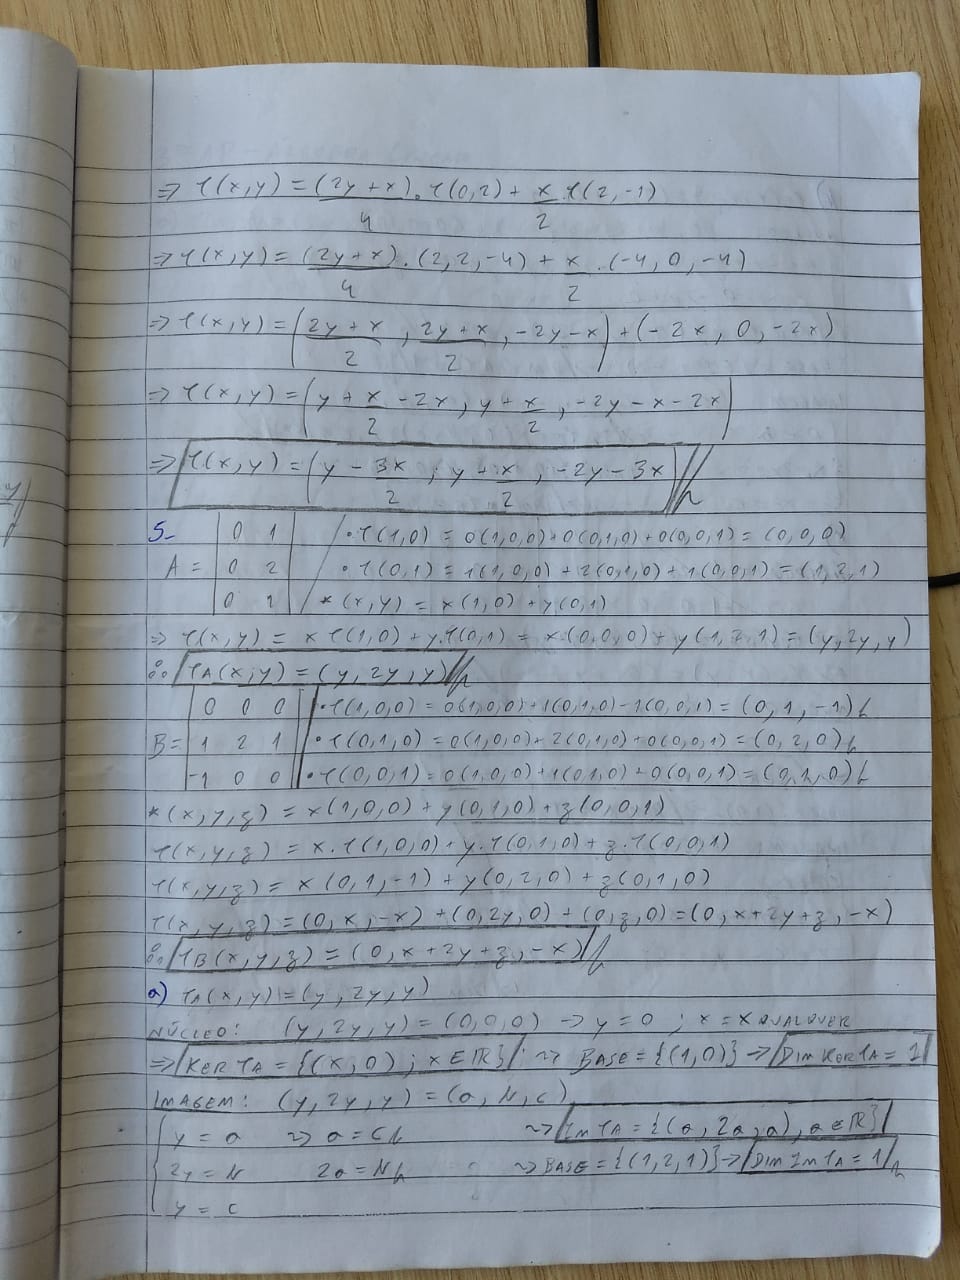 ⇒ T(x,y) = (2y+x)/4 . T(0,2) + x/2 . T(2,-1)
⇒ T(x,y) = (2y+x)/4 . (2,2,-4) + x/2 . (-4,0,-4)
⇒ T(x,y) = ((2y+x)/2 , (2y+x)/2 , -2y-x) + (-2x, 0, -2x)
⇒ T(x,y) = (y + x/2 - 2x, y + x/2 , -2y-x-2x)
⇒ T(x,y) = (y - 3x/2 ; y + x/2 , -2y-3x)
5-
A = | 0 1 | • T(1,0) = 0(1,0,0)+0(0,1,0)+0(0,0,1) = (0,0,0)
| 0 2 | • T(0,1) = 1(1,0,0)+2(0,1,0)+1(0,0,1) = (1,2,1)
| 0 1 | * (x,y) = x(1,0)+y(0,1)
⇒ T(x,y) = xT(1,0)+y.T(0,1) = x.(0,0,0)+y(1,2,1) = (y,2y,y)
∴ TA(x,y) = (y,2y,y)
| 0 0 0 | • T(1,0,0) = 0(1,0,0)+1(0,1,0)-1(0,0,1) = (0,1,-1)
B = | 1 2 1 | • T(0,1,0) = 0(1,0,0)+2(0,1,0)+0(0,0,1) = (0,2,0)
| -1 0 0 | • T(0,0,1) = 0(1,0,0)+1(0,1,0)+0(0,0,1) = (0,1,0)
* (x,y,z) = x(1,0,0)+y(0,1,0)+z(0,0,1)
T(x,y,z) = x.T(1,0,0)+y.T(0,1,0)+z.T(0,0,1)
T(x,y,z) = x(0,1,-1)+y(0,2,0)+z(0,1,0)
T(x,y,z) = (0,x,-x)+(0,2y,0)+(0,z,0) = (0,x+2y+z,-x)
∴ TB(x,y,z) = (0,x+2y+z,-x)
a) TA(x,y) = (y,2y,y)
NÚCLEO: (y,2y,y) = (0,0,0) → y=0 ; x = x QUALQUER
⇒ KER TA = {(x,0) ; x ∈ ℝ} ; ~> BASE = {(1,0)} → DIM KER TA = 1
IMAGEM: (y,2y,y) = (a,N,c)
y = a ~> a = c ~> Im TA = {(a,2a,a), a ∈ ℝ}
2y = N 2a = N ~> BASE = {(1,2,1)} → DIM Im TA = 1
y = c